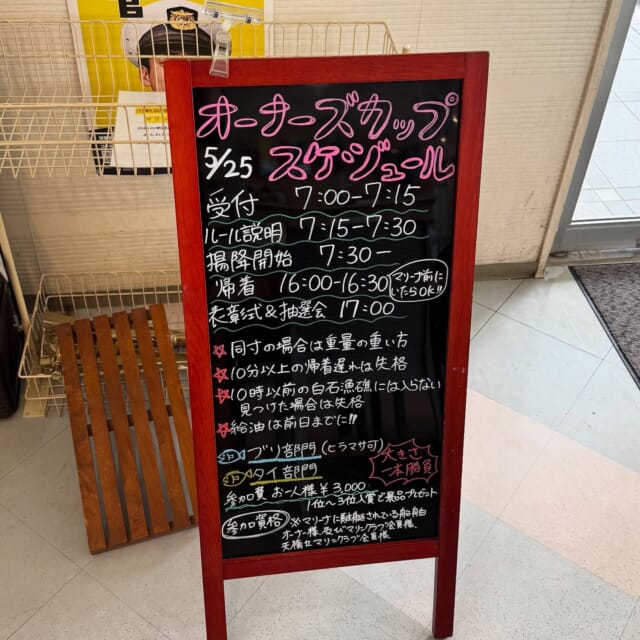 オーナーズカップ
5/25 スケジュール
受付 7:00-7:15
ルール説明 7:15-7:30
揚降開始 7:30-
帰着 16:00-16:30 マリーナ前にいたらOK!!
表彰式&抽選会 17:00
☆同寸の場合は重量の重い方
☆10分以上の帰着遅れは失格
☆10時以前の白石漁礁には入らない
見つけた場合は失格
☆給油は前日までに!!
ブリ部門(ヒラマサ可)
タイ部門
大きさ
一本勝負
参加費 お一人様¥3,000
1位~3位入賞で景品プレゼント
参加資格 ※マリーナに駐艇されている船舶
オーナー様及びマリンクラブ会員様、
天橋立マリンクラブ会員様